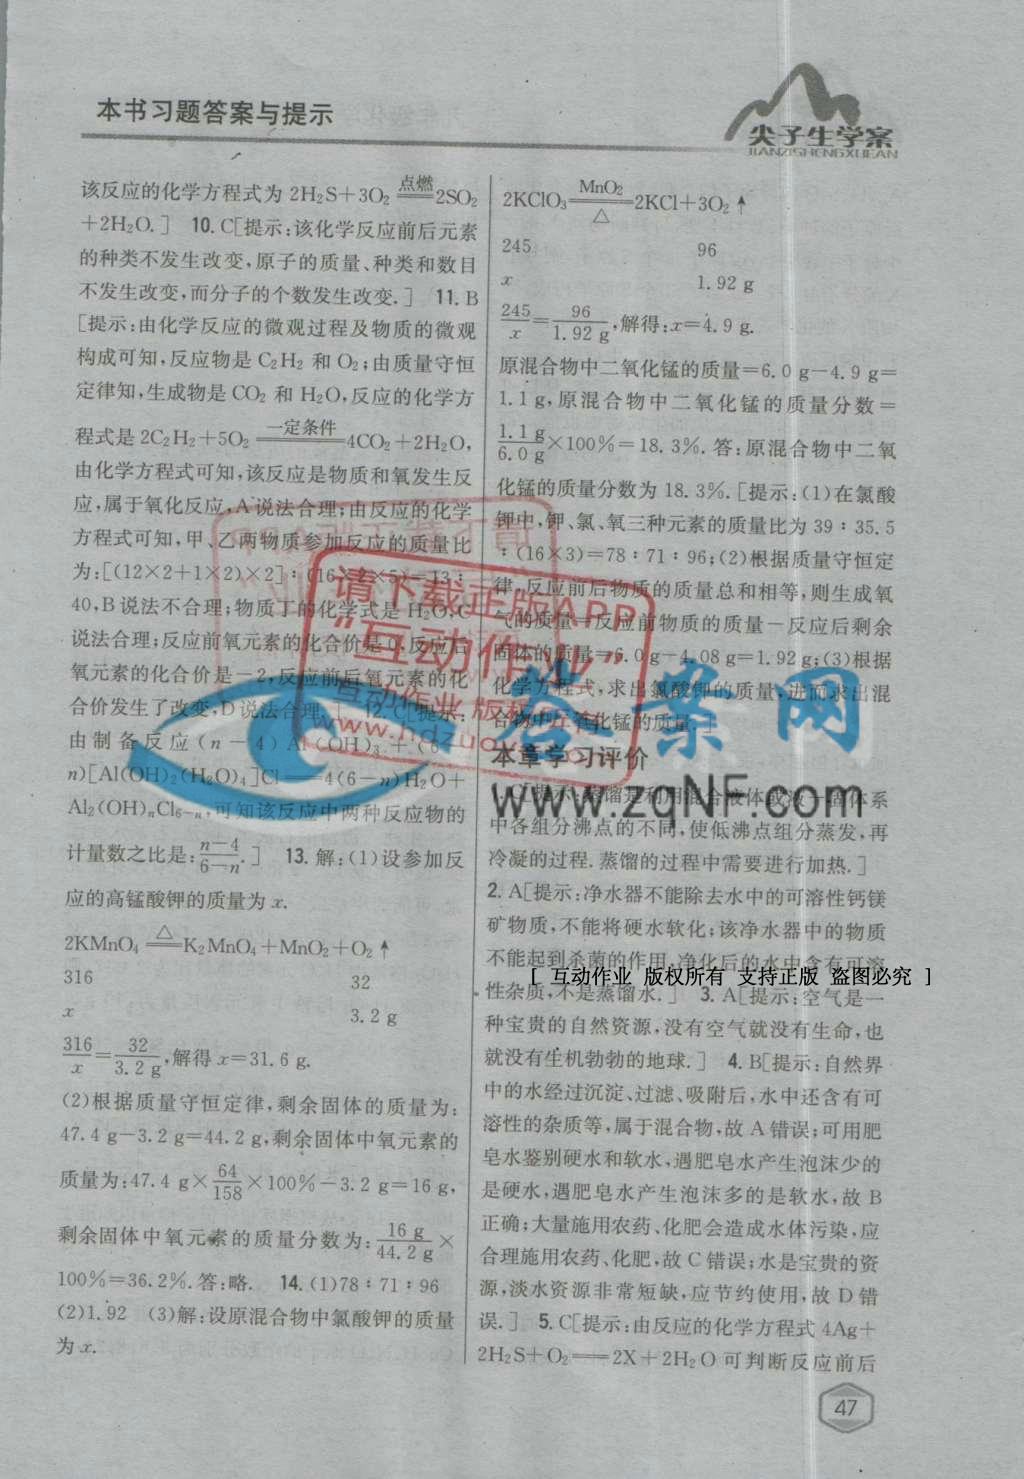 本书习题答案与提示
尖子生学案
JIANZISHENGXUEAN
该反应的化学方程式为 2H₂S+3O₂ 点燃 2SO₂
+2H₂O.] 10. C[提示:该化学反应前后元素
的种类不发生改变,原子的质量、种类和数目
不发生改变,而分子的个数发生改变.] 11. B
[提示:由化学反应的微观过程及物质的微观
构成可知,反应物是 C₂H₂ 和 O₂;由质量守恒
定律知,生成物是 CO₂ 和 H₂O,反应的化学方
程式是 2C₂H₂+5O₂ 一定条件 4CO₂+2H₂O,
由化学方程式可知,该反应是物质和氧发生反
应,属于氧化反应,A 说法合理;由反应的化学
方程式可知,甲、乙两物质参加反应的质量比
为:[(12×2+1×2)×2]:(16 ×5)=13:
40,B 说法不合理;物质丁的化学式是 H₂O,C
说法合理;反应前氧元素的化合价是 0,反应后
氧元素的化合价是-2,反应前后氧元素的化
合价发生了改变,D 说法合理.] 12. C[提示:
由制备反应 (n-4) Al(OH)₃+(6-
n)[Al(OH)₂(H₂O)₄]Cl══4(6-n)H₂O+
Al₂(OH)ₙCl₆₋ₙ,可知该反应中两种反应物的
计量数之比是: n-4/6-n.] 13. 解:(1)设参加反
应的高锰酸钾的质量为 x.
2KMnO₄ △ K₂MnO₄+MnO₂+O₂↑
316 32
x 3.2 g
316/x=32/3.2 g,解得 x=31.6 g.
(2)根据质量守恒定律,剩余固体的质量为:
47.4 g-3.2 g=44.2 g,剩余固体中氧元素的
质量为:47.4 g×64/158×100%-3.2 g=16 g,
剩余固体中氧元素的质量分数为: 16 g/44.2 g×
100%=36.2%.答:略. 14. (1)78:71:96
(2)1.92 (3)解:设原混合物中氯酸钾的质量
为 x.
2KClO₃ MnO₂ △ 2KCl+3O₂↑
245 96
x 1.92 g
245/x=96/1.92 g,解得:x=4.9 g.
原混合物中二氧化锰的质量=6.0 g-4.9 g=
1.1 g,原混合物中二氧化锰的质量分数=
1.1 g/6.0 g×100%=18.3%.答:原混合物中二氧
化锰的质量分数为 18.3%.[提示:(1)在氯酸
钾中,钾、氯、氧三种元素的质量比为 39:35.5
:(16×3)=78:71:96;(2)根据质量守恒定
律,反应前后物质的质量总和相等,则生成氧
气的质量=反应前物质的质量-反应后剩余
固体的质量=6.0 g-4.08 g=1.92 g;(3)根据
化学方程式,求出氯酸钾的质量,进而求出混
合物中二氧化锰的质量.]
本章学习评价
[提示:蒸馏是利用混合液体或液-固体系
中各组分沸点的不同,使低沸点组分蒸发,再
冷凝的过程.蒸馏的过程中需要进行加热.]
2. A[提示:净水器不能除去水中的可溶性钙镁
矿物质,不能将硬水软化;该净水器中的物质
不能起到杀菌的作用,净化后的水中含有可溶
性杂质,不是蒸馏水.] 3. A[提示:空气是一
种宝贵的自然资源,没有空气就没有生命,也
就没有生机勃勃的地球.] 4. B[提示:自然界
中的水经过沉淀、过滤、吸附后,水中还含有可
溶性的杂质等,属于混合物,故 A 错误;可用肥
皂水鉴别硬水和软水,遇肥皂水产生泡沫少的
是硬水,遇肥皂水产生泡沫多的是软水,故 B
正确;大量施用农药、化肥会造成水体污染,应
合理施用农药、化肥,故 C 错误;水是宝贵的资
源,淡水资源非常短缺,应节约使用,故 D 错
误.] 5. C[提示:由反应的化学方程式 4Ag+
2H₂S+O₂══2X+2H₂O 可判断反应前后
47
请下载正版APP
“互动作业”
互动作业 版权
答案网
www.zqNF.com
[ 互动作业 版权所有 支持正版 盗图必究 ]